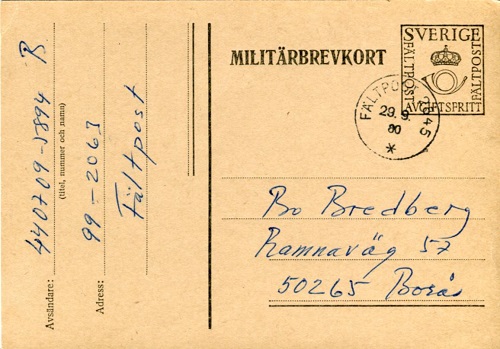 MILITÄRBREVKORT
SVERIGE
FÄLTPOST
FÄLTPOST
AVGIFTSFRITT
FÄLTPOST 2645
29. 9.
80
*
Bo Bredberg
Ramnaväg 57
50265 Borås
Avsändare: 440709-5894 B
(titel, nummer och namn)
Adress: 99-2063
Fältpost